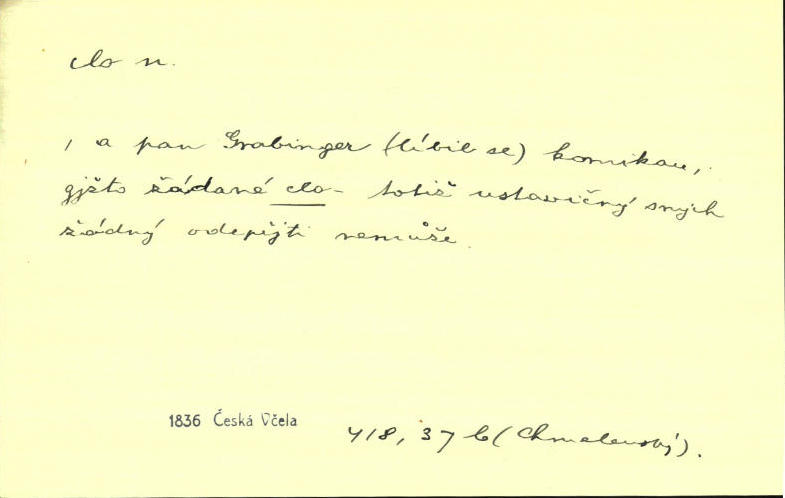 clo n.
, a pan Grabinger (líbil se) komikau,
gjžto žádané clo – totiž ustavičný smjch
žádný odepřjti nemůže.
1836 Česká Včela
418, 37 b (Chmelenský).